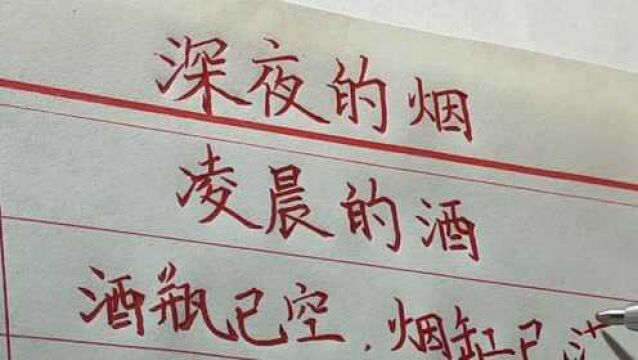 深夜的烟
凌晨的酒
酒瓶已空，烟缸已